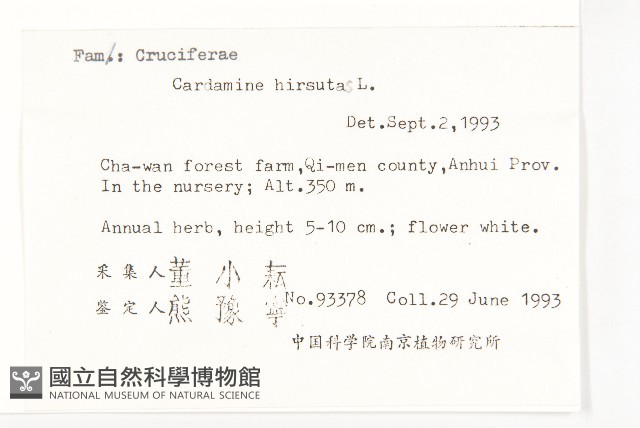 Fam.: Cruciferae
Cardamine hirsuta L.
Det.Sept.2,1993
Cha-wan forest farm,Qi-men county,Anhui Prov.
In the nursery; Alt.350 m.
Annual herb, height 5-10 cm.; flower white.
采集人 董小耘
鉴定人 熊豫寧 No.93378 Coll.29 June 1993
中国科学院南京植物研究所
國立自然科學博物館
NATIONAL MUSEUM OF NATURAL SCIENCE